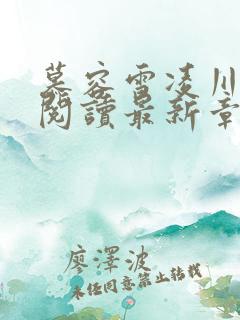 慕容雪凌川
閱讀最新章
廖澤波
未經同意禁止轉載